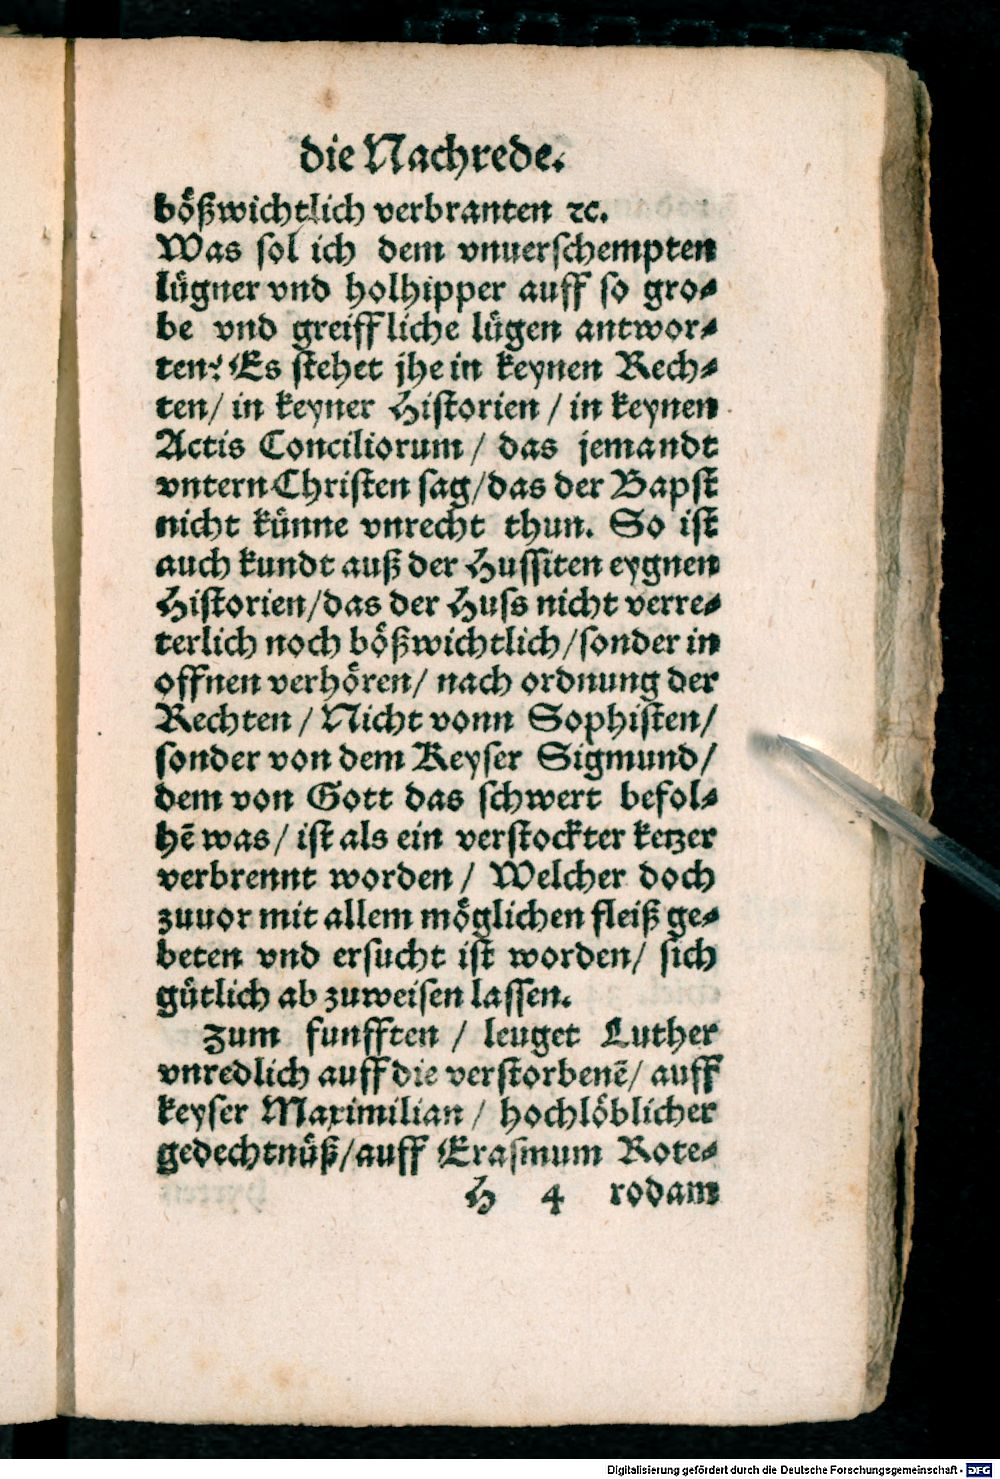 die Nachrede.
bößwichtlich verbranten ꝛc.
Was sol ich dem vnuerschempten
lügner vnd holhipper auff so gro⸗
be vnd greiffliche lügen antwor⸗
ten? Es stehet jhe in keynen Rech⸗
ten/ in keyner Historien / in keynen
Actis Conciliorum/ das jemandt
vntern Christen sag/das der Bapst
nicht künne vnrecht thun. So ist
auch kundt auß der Hussiten eygnen
Historien/das der Huss nicht verre⸗
terlich noch bößwichtlich/sonder in
offnen verhören/ nach ordnung der
Rechten / Nicht vonn Sophisten/
sonder von dem Keyser Sigmund/
dem von Gott das schwert befol⸗
hē was/ ist als ein verstockter ketzer
verbrennt worden / Welcher doch
zuuor mit allem möglichen fleiß ge⸗
beten vnd ersucht ist worden/ sich
gütlich ab zuweisen lassen.
Zum funfften / leuget Luther
vnredlich auff die verstorbenē/ auff
keyser Maximilian / hochlöblicher
gedechtnüß/auff Erasmum Rote⸗
H 4 rodam
Digitalisierung gefördert durch die Deutsche Forschungsgemeinschaft - DFG